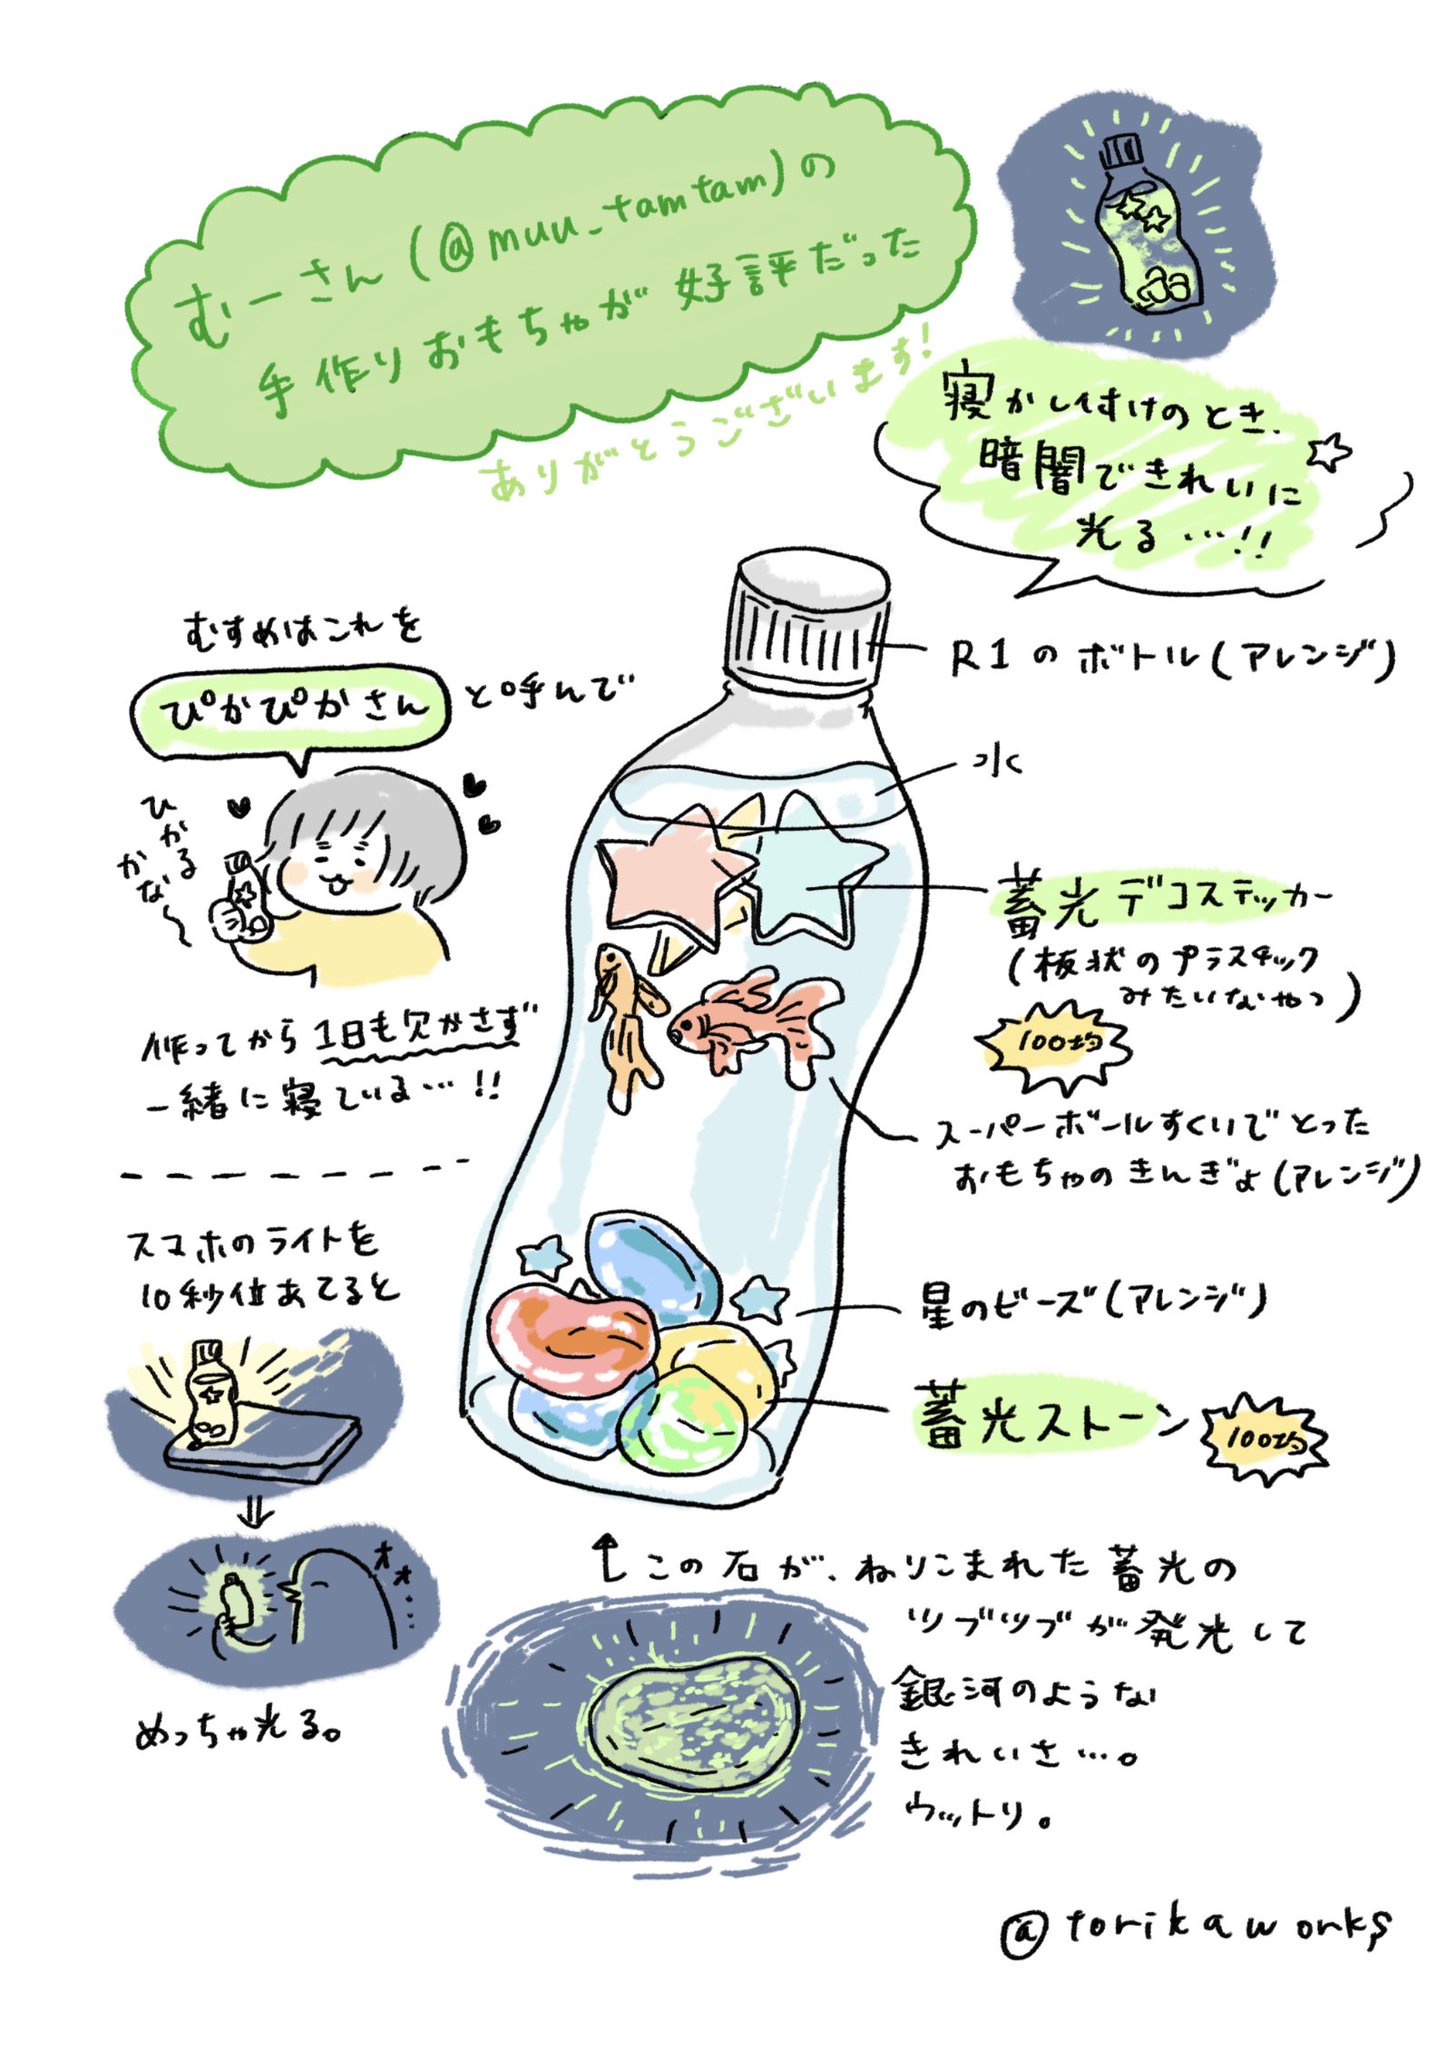 むーさん(@muu_tamtam)の
手作りおもちゃが好評だった
ありがとうございます!
寝かし付けのとき、
暗闇できれいに
光る…!!
むすめはこれを
ぴかぴかさん
と呼んで
ひかる
かな〜
作ってから1日も欠かさず
一緒に寝ている…!!
スマホのライトを
10秒位あてると
オオ…
めっちゃ光る。
R1のボトル(アレンジ)
水
蓄光デコステッカー
(板状のプラスチック
みたいなやつ)
100均
スーパーボールすくいでとった
おもちゃのきんぎょ(アレンジ)
星のビーズ(アレンジ)
蓄光ストーン
100均
この石が、ねりこまれた蓄光の
ツブツブが発光して
銀河のような
きれいさ…。
ウットリ。
@torikaworks